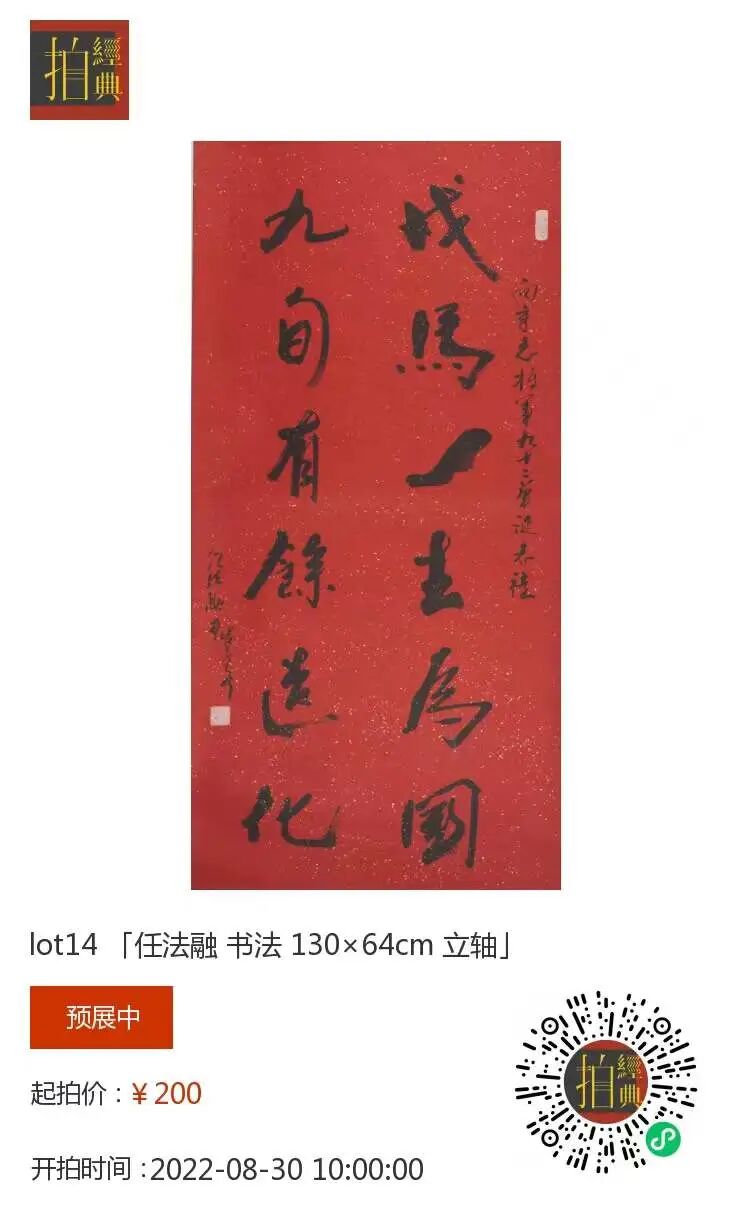 經典
拍
向守志将軍九十二華誕恭禧
戎馬一生為國
九旬有餘造化
任法融書
lot14 「任法融 书法 130×64cm 立轴」
预展中
起拍价：¥ 200
开拍时间：2022-08-30 10:00:00
經典
拍